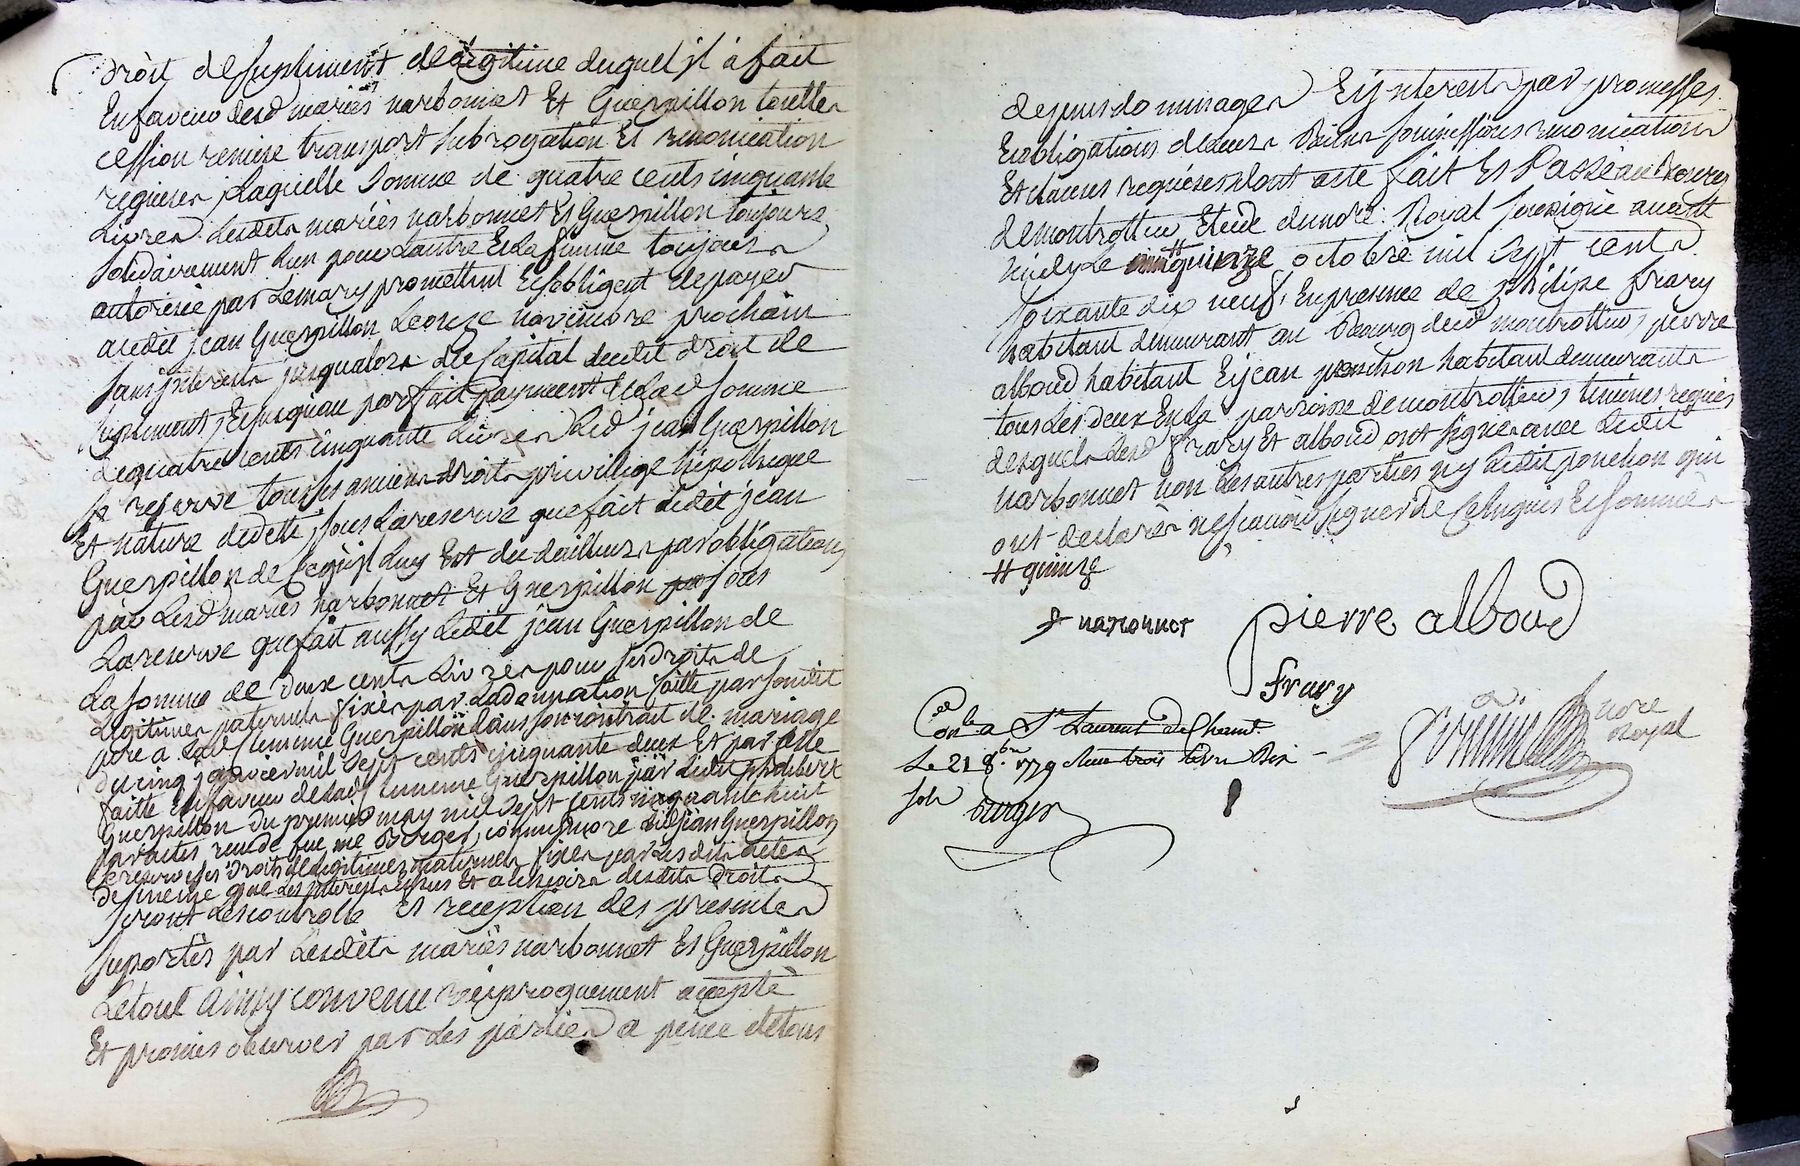 droit de supliment de légitime duquel jl à fait
En faveur desd mariés narbonnet Et Guerpillon touttes
cession remise transport subrogation Et renonciation
requises, Laquelle somme de quatre cents cinquante
Livres Lesdits mariés narbonnet Et Guerpillon toujours
solidairement L'un pour L'autre Et La femme toujours
autorisée par Le mary promettent Et s'obligent de payer
audit jean Guerpillon Le onze novembre prochain
sans jnterests jusqualors Le Capital dudit droit de
supliment, Et jusqu'au parfait payement de Lad somme
de quatre cents cinquante Livres Led jean Guerpillon
se reserve tous ses anciens droits privillege hipotheque
Et nature de dette, sous La reserve que fait Ledit jean
Guerpillon de ce qu'jl Luy Est du dailleurs par obligations
par Lesd mariés narbonnet Et Guerpillon sous
La reserve que fait aussy Ledit jean Guerpillon de
La somme de deux cents Livres pour ses droits de
Legitimes paternels fixés par La donnation faitte par son dit
pere a Lad femme Guerpillon dans son contrait de mariage
du cinq janvier mil sept cents cinquante deux Et par celle
faitte En faveur de lad femme Guerpillon par Ledit philibert
Guerpillon du premier may mil sept cents cinquante huit
par actes reçus de feu me Berger, comme Encore Led jean Guerpillon
se reserve ses droits de Legitimes maternels fixés par Lesdits actes
de meme que Les jnterests Echus Et a Echeoir desdits droits
seront Les controlle Et reception des presentes
suportés par Lesdits mariés narbonnet Et Guerpillon
Le tout ainsy convenu reciproquement accepté
Et promis observer par Les parties a peine de tous
depens dommages Et jnterests par promesses
Et obligations de Leurs Biens soumissions renonciations
Et clauses requises dont acte fait Et Passé au Bourg
de montrottier Etude du nore Royal soussigné avant
midy Le quinze octobre mil sept cents
soixante dix neuf, En presence de philipe frary
habitant demeurant au Bourg dud montrottier, pierre
alboud habitant Et jean ponchon habitant demeurants
tous Les deux En La parroisse de montrottier, temoins requis
desquels Lesd frary Et alboud ont signé avec Ledit
narbonnet non Les autres parties ny Ledit ponchon qui
ont declaré ne sçavoir signer de ce Enquis Et sommés
# quinze
narbonnet pierre alboud
frary
nore Royal
Con.lé a St Laurent de Chamt.
Le 21 8.bre 1779 Reçu trois Livres dix
sols
Berger